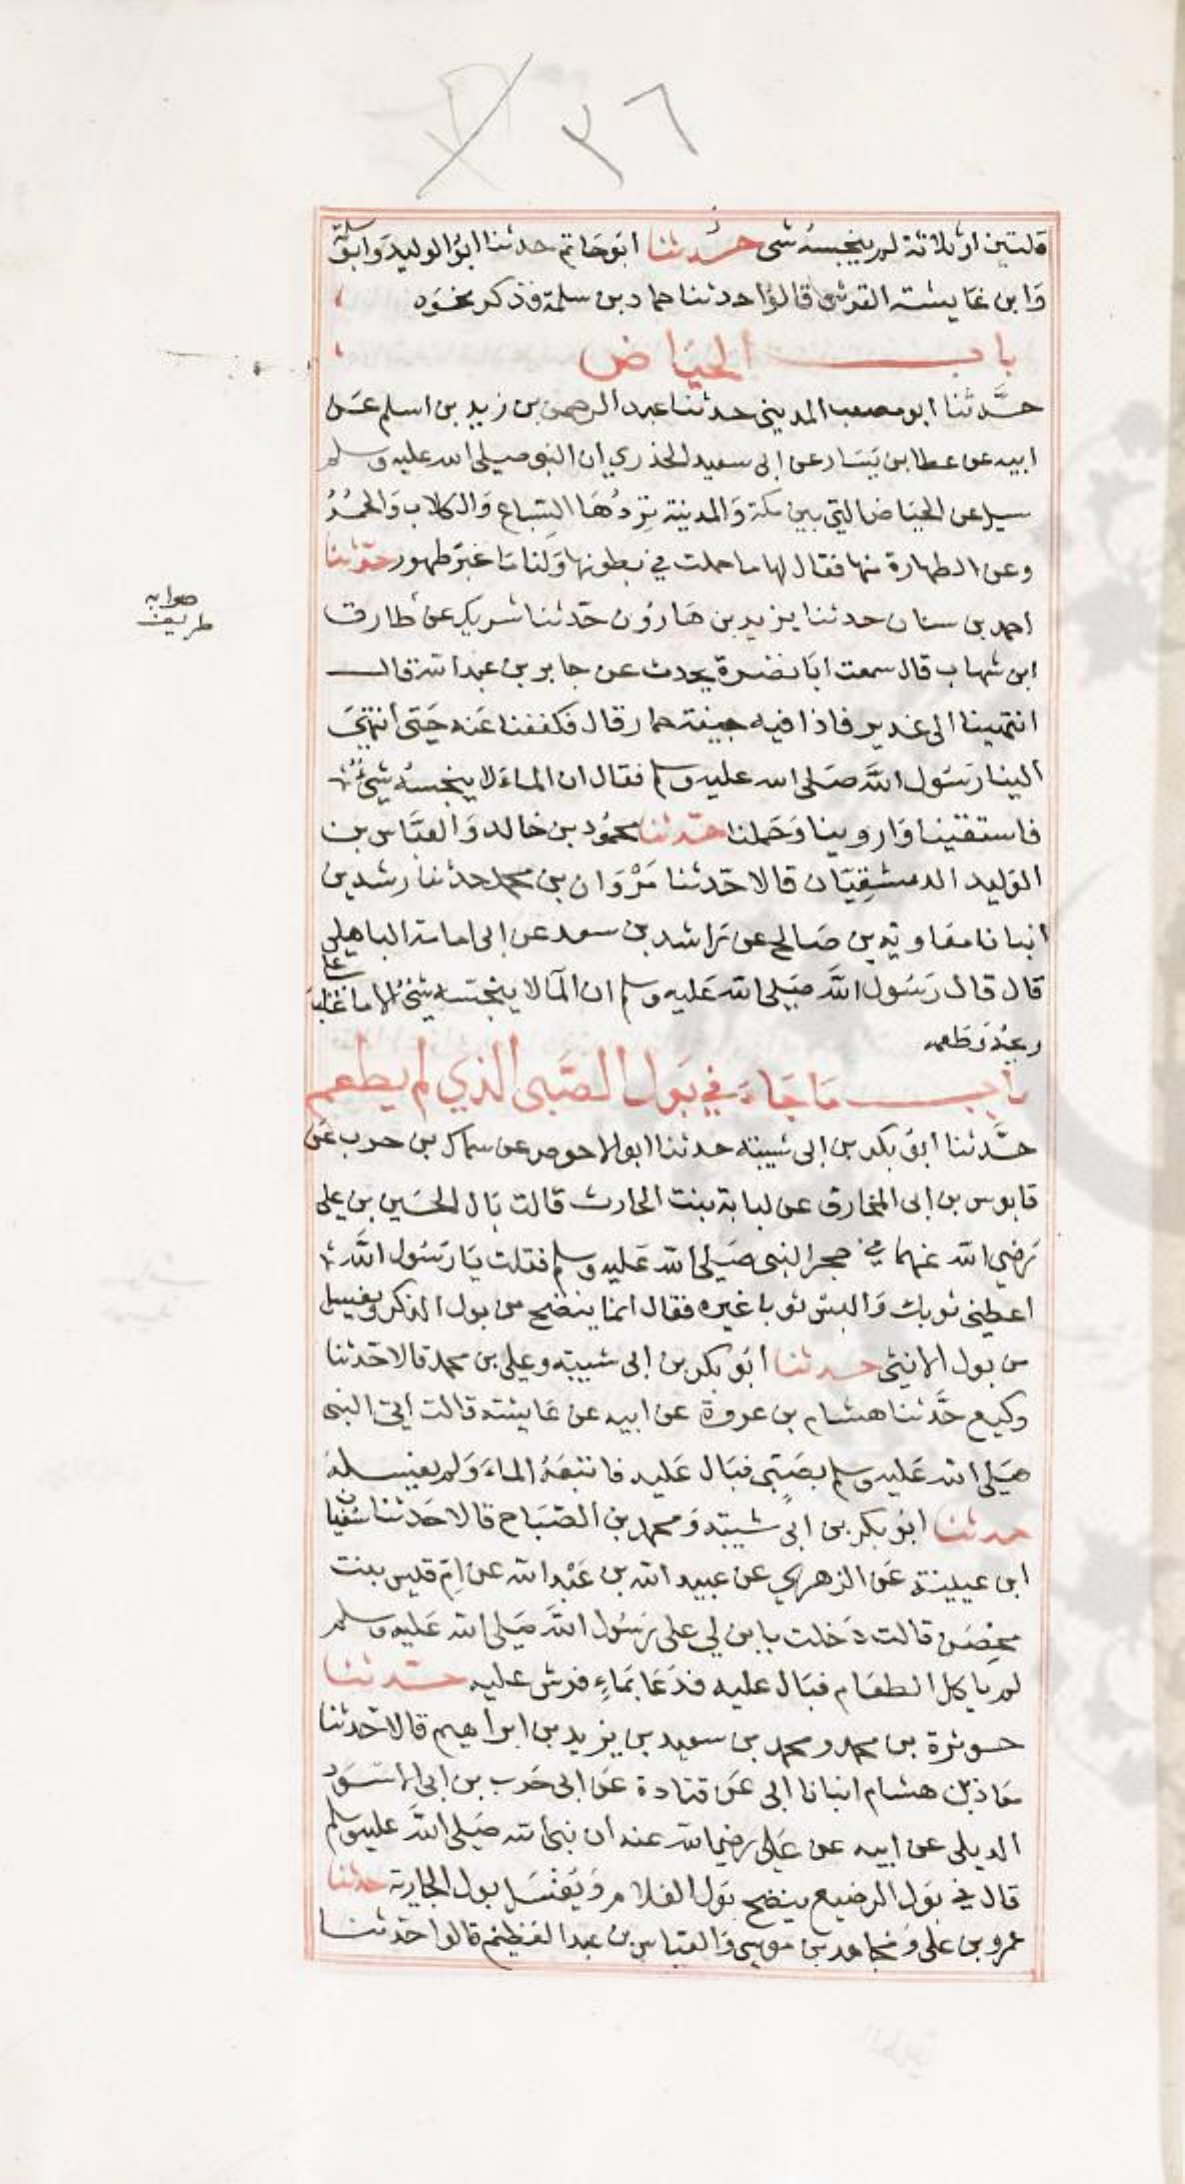 ٣٦
قلتين او ثلاثة لم ينجسه شى حدثنا ابو حاتم حدثنا ابو الوليد وابو سلمة
وابن عايشة القرشى قالوا حدثنا حماد بن سلمة فذكر نحوه
باب الحياض
حدَّثنا ابو مصعب المدينى حدثنا عبد الرحمن بن زيد بن اسلم عن
ابيه عن عطا بن يَسَار عن ابى سعيد الخذري ان النبى صلى الله عليه وسلم
سيل عن الحيَاض التي بين مكة وَالمدينة تردُهَا السّبَاع وَالكلاب وَالحُمُرُ
وعن الطهارة منها فقال لها ما حملت في بطونها وَلنا مَا غبَرَ طهور حدّثنا
احمد بن سنان حدثنا يزيد بن هَارُون حَدّثنا شريك عن طارق
صوابه
طريف
ابن شهاب قال سمعت ابَا نضرة يحدث عن جابر بن عَبد الله قال
انتهينا الى غدير فاذا فيه جيفة حمار قال فكففنا عَنه حَتى انتهَى
الينا رَسُول اللَّه صَلى الله عليه وسلم فقال ان الماءَ لا ينجسهُ شيْءٌ
فاستقينا وَاروينا وَحَملنا حَدّثنا محمُود بن خالد وَ العبَّاس بن
الوَليد الدمشقِيّان قالا حَدّثنا مَرْوَان بن محمد حدثنا رشدين
انبانا معَاوية بن صَالح عن رَاشد بن سعد عن ابى امامة الباهلى
قال قال رَسُول اللَّه صَلى الله عَليه وسلم ان المآ لا ينجّسه شيْءٌ الا ما غلبَ على
ريحه وَطَعمه
بابُ مَا جَاءَ في بَول الصَّبى الذي لم يطعم
حَدَّثنا ابو بكر بن ابى شيبة حدثنا ابو الاحوص عن سماك بن حرب عَن
قابوس بن ابى المخارق عن لبابة بنت الحارث قالت بَال الحُسَين بن على
رَضي الله عنهما في حجر النبى صَلى الله عَليه وسلم فقلت يَا رَسُول اللَّه
اعطِنى ثوبك وَالبس ثوبا غيره فقال انما ينضح من بول الذكر ويغسل
من بول الانثى حدثنا ابَو بكر بن ابى شيبة وعلى بن محمد قالا حَدّثنا
وكيع حَدَّثنا هشام بن عروة عن ابيه عن عَايشة قالت اتى النبى
صَلى الله عَليه وسلم بصَبّى فبَال عَليه فاتبعَهُ الماءَ وَلم يغسلهُ
حدثنا ابو بكر بن ابى شيبة وَ محمد بن الصّبَاح قالا حَدثنا سُفيَان
ابن عيينة عَن الزهري عن عبيد الله بن عَبْد الله عن امّ قيس بنت
محِصَن قالت دَخلت بابن لي على رَسُول اللَّه صَلى الله عَليه وسلم
لم ياكل الطعَام فبَال عليه فدَعَا بمَاءٍ فرش عليه حَدّثنا
حوثرة بن محمد ومحمد بن سعيد بن يزيد بن ابراهيم قالا حَدثنا
مَعاذ بن هشام انبانا ابى عَن قتادة عَن ابى حَرب بن ابى الاسوَد
الديلى عن ابيه عن عَلى رضي الله عنه ان نبى الله صَلى اللَّه عليه وسلم
قال في بَول الرضيع ينضح بَول الغلام وَ يُغسَل بول الجَارية حدثنا
عمرو بن على وَ مجاهد بن موسى وَالعبَاس بن عبد العَظيم قالوا حَدّثنا